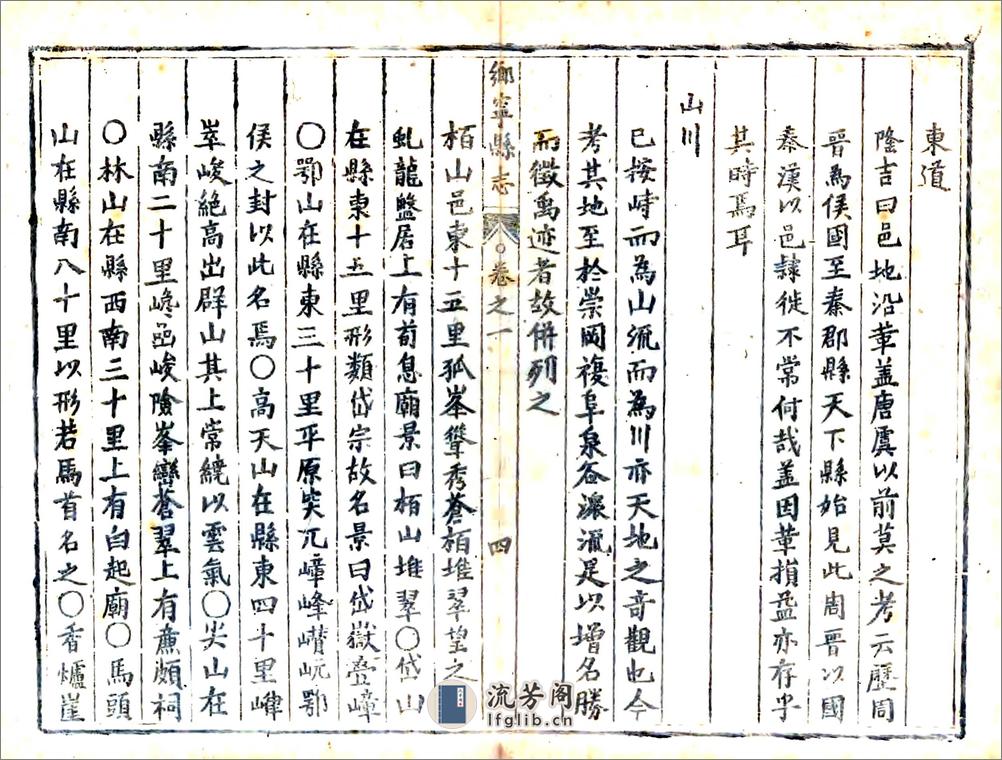 東道
隆吉曰邑地沿革盖唐虞以前莫之考云歷周
晉為侯國至秦郡縣天下縣始見此周晉以國
秦漢以邑隸徙不常何哉盖因革損益亦存乎
其時焉耳
山川
已按峙而為山流而為川亦天地之奇觀也今
考其地至於崇岡複阜泉谷瀠㴲足以增名勝
而徵禹迹者故併列之
鄉寧縣志 卷之一 四
栢山邑東十五里孤峯聳秀蒼栢堆翠望之
虬龍盤居上有荀息廟景曰栢山堆翠○岱山
在縣東十五里形類岱宗故名景曰岱嶽疊嶂
○鄂山在縣東三十里平原突兀嶂峰巑岏鄂
侯之封以此名焉○高天山在縣東四十里嵂
崒峻絕高出群山其上常繞以雲氣○尖山在
縣南二十里巉嵒峻險峯巒蒼翠上有亷頗祠
○林山在縣西南三十里上有白起廟○馬頭
山在縣南八十里以形若馬首名之○香爐崖
流芳阁
lfglib.cn